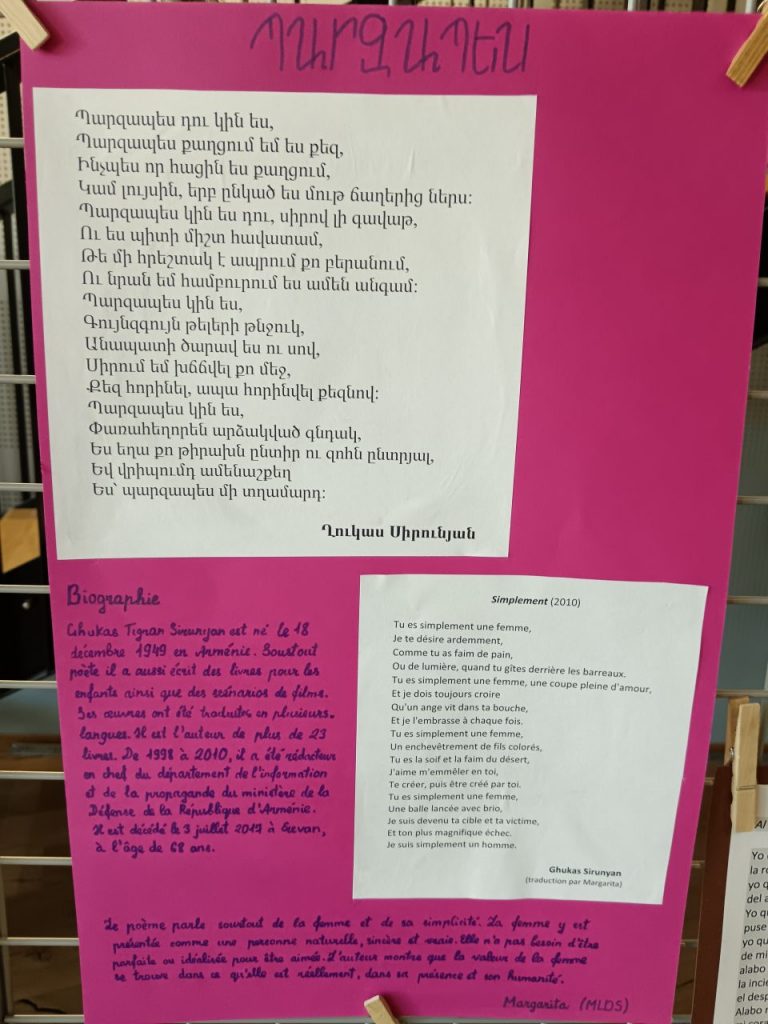 ՊԱՐԶԱՊԵՍ
Պարզապես դու կին ես,
Պարզապես քաղցում եմ ես քեզ,
Ինչպես որ հացին ես քաղցում,
Կամ լույսին, երբ ընկած ես մութ ճաղերից ներս:
Պարզապես կին ես դու, սիրով լի գավաթ,
Ու ես պիտի միշտ հավատամ,
Թե մի հրեշտակ է ապրում քո բերանում,
Ու նրան եմ համբուրում ես ամեն անգամ:
Պարզապես կին ես,
Գույնզգույն թելերի թնջուկ,
Անապատի ծարավ ես ու սով,
Սիրում եմ խճճվել քո մեջ,
Քեզ հորինել, ապա հորինվել քեզնով:
Պարզապես կին ես,
Փառահեղորեն արձակված գնդակ,
Ես եղա քո թիրախն ընտիր ու զոհն ընտրյալ,
Եվ վրիպումդ ամենաշքեղ
Ես՝ պարզապես մի տղամարդ:
Ղուկաս Սիրունյան
Biographie
Ghukas Tigran Sirunyan est né le 18
décembre 1949 en Arménie. Surtout
poète il a aussi écrit des livres pour les
enfants ainsi que des scénarios de films.
Ses œuvres ont été traduites en plusieurs
langues. Il est l'auteur de plus de 23
livres. De 1998 à 2010, il a été rédacteur
en chef du département de l'information
et de la propagande du ministère de la
Défense de la République d'Arménie.
Il est décédé le 3 juillet 2017 à Erevan,
à l'âge de 68 ans.
Simplement (2010)
Tu es simplement une femme,
Je te désire ardemment,
Comme tu as faim de pain,
Ou de lumière, quand tu gîtes derrière les barreaux.
Tu es simplement une femme, une coupe pleine d'amour,
Et je dois toujours croire
Qu'un ange vit dans ta bouche,
Et je l'embrasse à chaque fois.
Tu es simplement une femme,
Un enchevêtrement de fils colorés,
Tu es la soif et la faim du désert,
J'aime m'emmêler en toi,
Te créer, puis être créé par toi.
Tu es simplement une femme,
Une balle lancée avec brio,
Je suis devenu ta cible et ta victime,
Et ton plus magnifique échec.
Je suis simplement un homme.
Ghukas Sirunyan
(traduction par Margarita)
Le poème parle surtout de la femme et de sa simplicité. La femme y est
présentée comme une personne naturelle, sincère et vraie. Elle n'a pas besoin d'être
parfaite ou idéalisée pour être aimée. L'auteur montre que la valeur de la femme
se trouve dans ce qu'elle est réellement, dans sa présence et son humanité.
Margarita (MLDS)
Al
Yo
la
yo q
del a
Yo qu
puse
yo qu
de mi
alabo
la incie
el desp
Alabo